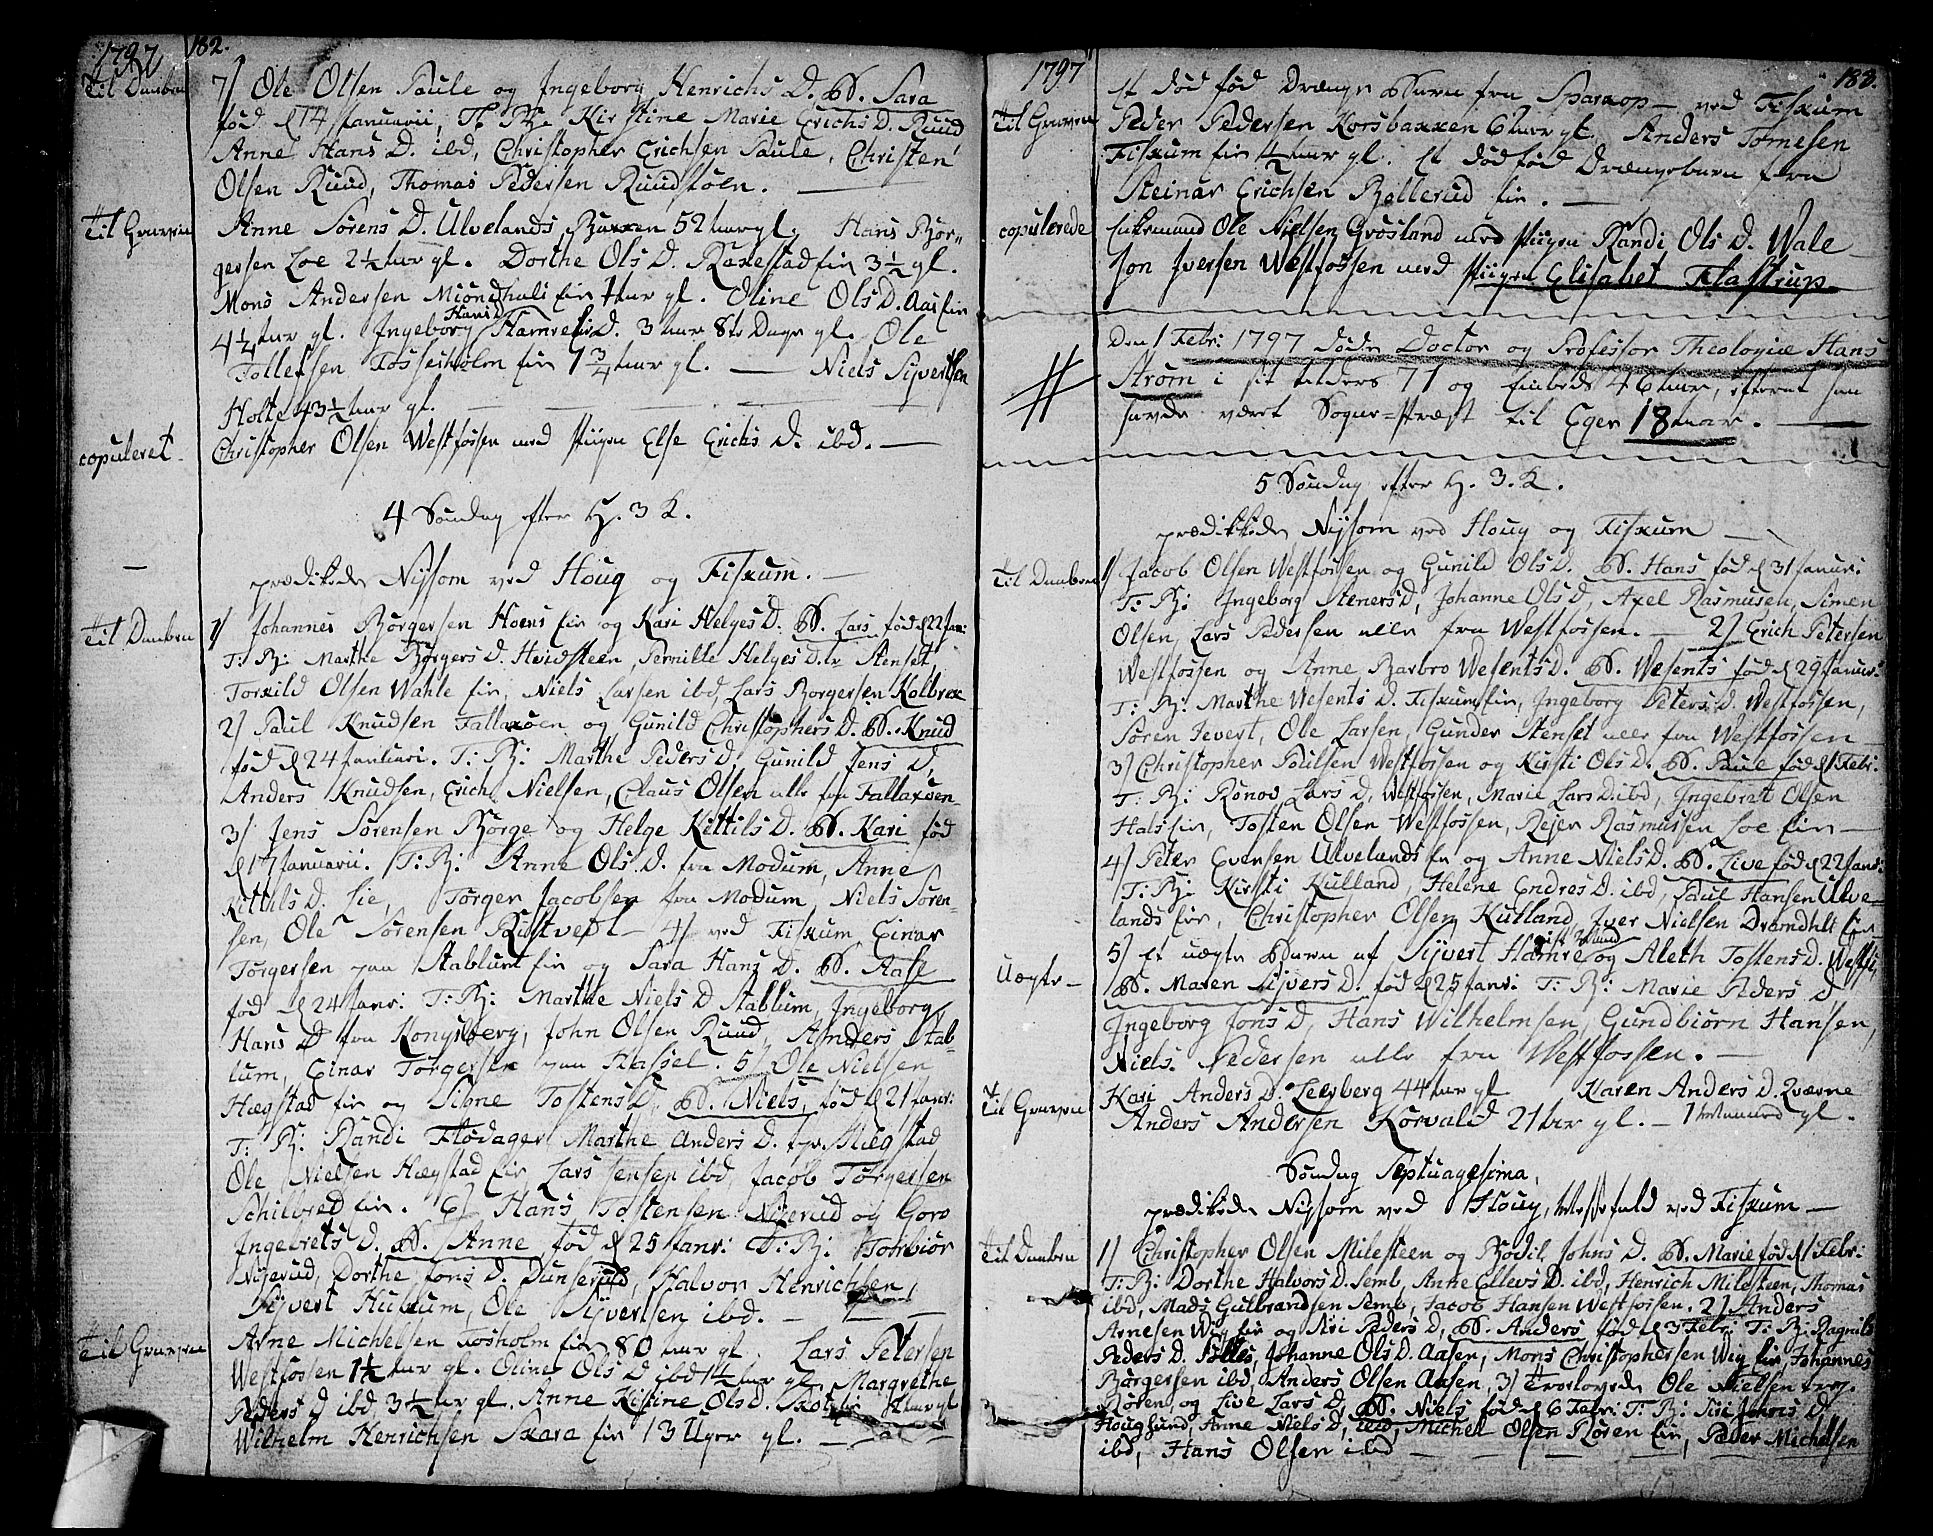 1797
182.
Til Daaben
7/ Ole Olsen Saule og Ingeborg Henrichs D. B. Sara
fød d 14 Januarii, T. B. Kirstine Marie Erichs D. Ruud
Anne Hans D. ibd, Christopher Erichsen Saule, Christen
Olsen Ruud, Thomas Pedersen Ruudstøen. —
Til Graven
Anne Sørens D. Ulvelands Bakken 52 aar gl. Hans Bør-
gersen Loe 2½ aar gl. Dorthe Ols D. Bakestad eie 3½ gl.
Mons Andersen Miøndhali eie 1 aar gl. Oline Ols D. Aas eie
4¼ aar gl. Ingeborg Hans D. 3 aar 8te Dage gl. Ole
Tollefsen Fossesholm eie 1¾ aar gl. — Niels Syvertsen
Holte 43½ aar gl.
copuleret
Christopher Olsen Westfossen med Piigen Else Erichs D. ibd. —
4 Søndag efter H. 3 K.
prædikede Nysom ved Houg og Fiskum. —
Til Daaben
1/ Johannes Børgersen Hoens eie og Kari Helges D. B. Lars fød d 22 Jan:
T: B: Marthe Børgers D. Hvidsteen, Pernille Helges D. Stenset,
Torkild Olsen Wahle eie, Niels Larsen ibd, Lars Borgersen Kolbrek
2/ Paul Knudsen Fallakøen og Gunild Christophers D. B. Knud
fød d 24 Januari. T: B: Marthe Peders D, Gunild Jens D,
Anders Knudsen, Erich Nielsen, Claus Olsen alle fra Fallakøen-
3/ Jens Sørensen Borge og Helge Kittils D. B. Kari fød
d 17 Januarii. T: B: Anne Ols D. fra Modum, Anne
Kittils D. Lie, Torger Jacobsen fra Modum, Niels Søren-
sen, Ole Sørensen Ristvedt — 4/ ved Fiskum Einar
Torgersen paa Stablum eie og Sara Hans D. B. Aase
fød d 24 Janr: T: B: Marthe Niels D Stablum, Ingeborg
Hans D fra Kongsberg, John Olsen Ruud, Anders Stab-
lum, Einar Torgersen paa 5/ Ole Nielsen
Hægstad eie og Signe Tostens D, B. Niels, fød d 21 Janr:
T: B: Randi Flødager Marthe Anders D. Hægstad
Ole Nielsen Hægstad eie, Lars Jensen ibd, Jacob Torgersen
Schilbred eie. 6/ Hans Tostensen Nyerud og Goro
Ingebrets D, B. Anne, fød d 25 Janr: T: B: Torbiør
Nyerud, Dorthe Jons D. Dunserud, Halvor Henrichsen,
Syvert Hukum, Ole Syvertsen ibd. —
Til Graven
Arne Michelsen Fosholm eie 80 aar gl. Lars Petersen
Westfossen 1½ aar gl. Oline Ols D ibd 1½ aar gl. Margrethe
Peders D ibd 3½ aar gl. Anne Kistine Ols D. aar gl
Wilhelm Henrichsen Skara eie 13 Uger gl. —
1797
183.
Til Graven
Et død fød Drænge Barn fra Sparkop — ved Fiskum
Peder Pedersen Korsbakken 6 aar gl. Anders Tomesen
Fiskum eie ½ aar gl. Et dødfød Drængebarn fra
Steinar Erichsen Bollerud eie. —
copulerede
Enkemand Ole Nielsen Grosland med Piigen Randi Ols D. Wale
Jon Iversen Westfossen med Piigen Elisabet Flastrup
#
Den 1 Febr: 1797 døde Doctor og Professor Theologiæ Hans
Strøm i sit Alders 71 og Embeds 46 aar, efterat han
havde været Sogne-Præst til Eger 18 aar. —
5 Søndag efter H. 3. K.
prædikede Nysom ved Houg og Fiskum —
Til Daaben
1/ Jacob Olsen Westfossen og Gunild Ols D. B. Hans fød d 31 Janur:
T: B: Ingeborg Steners D, Johanne Ols D, Axel Rasmusen, Simen
Olsen, Lars Pedersen alle fra Westfossen. — 2/ Erich Petersen
Westfossen og Anne Barbro Wesents D. B. Wesents fød d 29 Januar:
T: B: Marthe Wesents D. Fiskum eie, Ingeborg Peters D. Westfossen,
Søren Jevert, Ole Larsen, Gunder Stenset alle fra Westfossen —
3/ Christopher Poulsen Westfossen og Kirsti Ols D. B. Paul fød d 1 Febr:
T: B: Rønov Lars D, Westfossen, Marie Lars D. ibd, Ingebret Olsen
Hals eie, Tosten Olsen Westfossen, Rejer Rasmussen Loe eie —
4/ Peter Evensen Ulvelands eie og Anne Niels D. B. Live fød d 22 Janr:
T: B: Kirsti Kulland, Helene Endres D. ibd, Paul Hansen Ulve-
lands eie, Christopher Olsen Kutland, Iver Nielsen Dramdhli eie
Uægte —
5/ Et uægte Barn af Syvert Hamre gift Mand og Aleth Tostens D. Westf:
B. Maren Syvers D. fød d 25 Janr: T: B: Marie Peders D
Ingeborg Jons D, Hans Wilhelmsen, Gundbiørn Hansen,
Niels Pedersen alle fra Westfossen. —
Til Graven
Kari Anders D. Leesberg 44 aar gl Karen Anders D. Qværne
Anders Andersen Korvald 21 aar gl. — 1 Maaned gl.
Søndag Septuagesima,
prædikede Nysom ved Houg, Messefald ved Fiskum —
Til Daaben
1/ Christopher Olsen Milesteen og Bodil Johns D. B. Marie fød d 1 Febr:
T: B: Dorthe Halvors D. Semb, Anne Ellevs D. ibd, Henrich Milesteen, Thomas
ibd, Mads Gulbrandsen Semb, Jacob Hansen Westfossen. 2/ Anders
Arnesen Wig eie og Siri Peders D, B. Anders fød d 3 Febr: T: B: Ragnild
Peders D. Følles, Johanne Ols D. Aasen, Mons Christophersen Wig eie, Johannes
Børgersen ibd, Anders Olsen Aasen, 3/ Trolovede Ole Nielsen
Røren og Live Lars D. B. Niels fød d 6 Febr: T: B: Siri Johns D
Hougsund, Anne Niels D, ibid, Michel Olsen Røren eie, Peder Michelsen
ibd, Hans Olsen ibd —